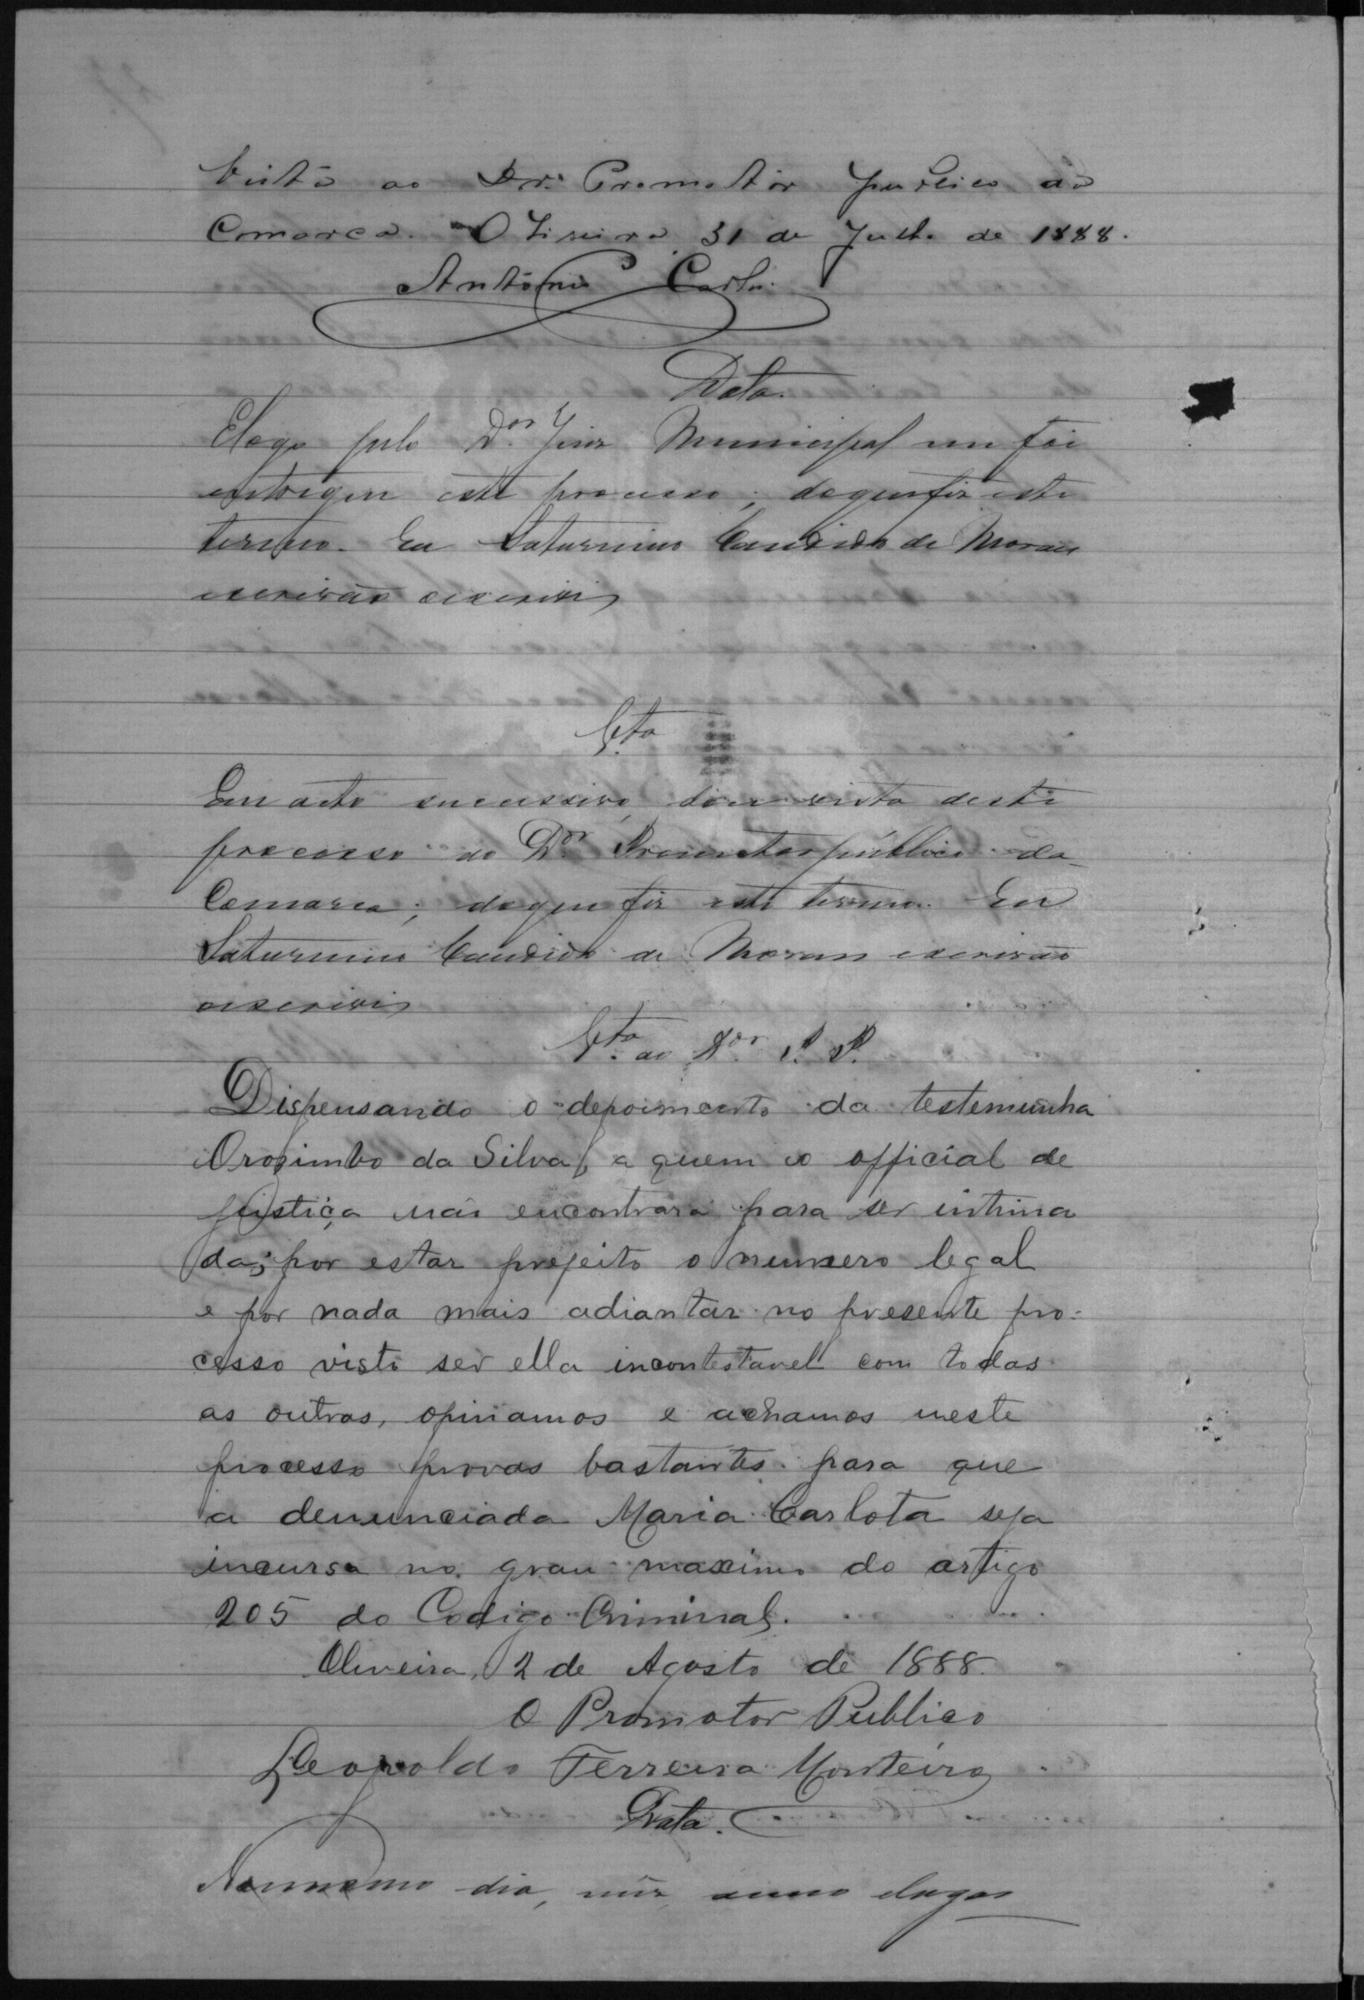 Vista ao Dr. Promotor publico da
Comarca. Oliveira, 31 de Julho de 1888.
Antonio Carlos.
Data.
E logo pelo Dor. Juiz Municipal me foi
entregue este processo; do que fiz este
termo. Eu Saturnino Candido de Moraes
escrivão o escrivi
Vta
Em acto successivo, dou vista deste
processo ao Dor. Promotor publico da
Comarca; do que fiz este termo. Eu
Saturnino Candido de Moraes escrivão
o escrivi
Vta ao Dor. P. P.
Dispensando o depoimento da testemunha
Orozimbo da Silva, a quem o official de
justiça não encontrara para ser intima
da, por estar prefeito o numero legal
e por nada mais adiantar no presente pro-
cesso visto ser ella incontestavel com todas
as outras, opinamos e achamos neste
processo provas bastantes para que
a denunciada Maria Carlota seja
incursa no grau maximo do artigo
205 do Codigo Criminal.
Oliveira, 2 de Agosto de 1888.
O Promotor Publico
Leopoldo Ferreira Monteiro
Data.
No mesmo dia, mez, anno e lugar